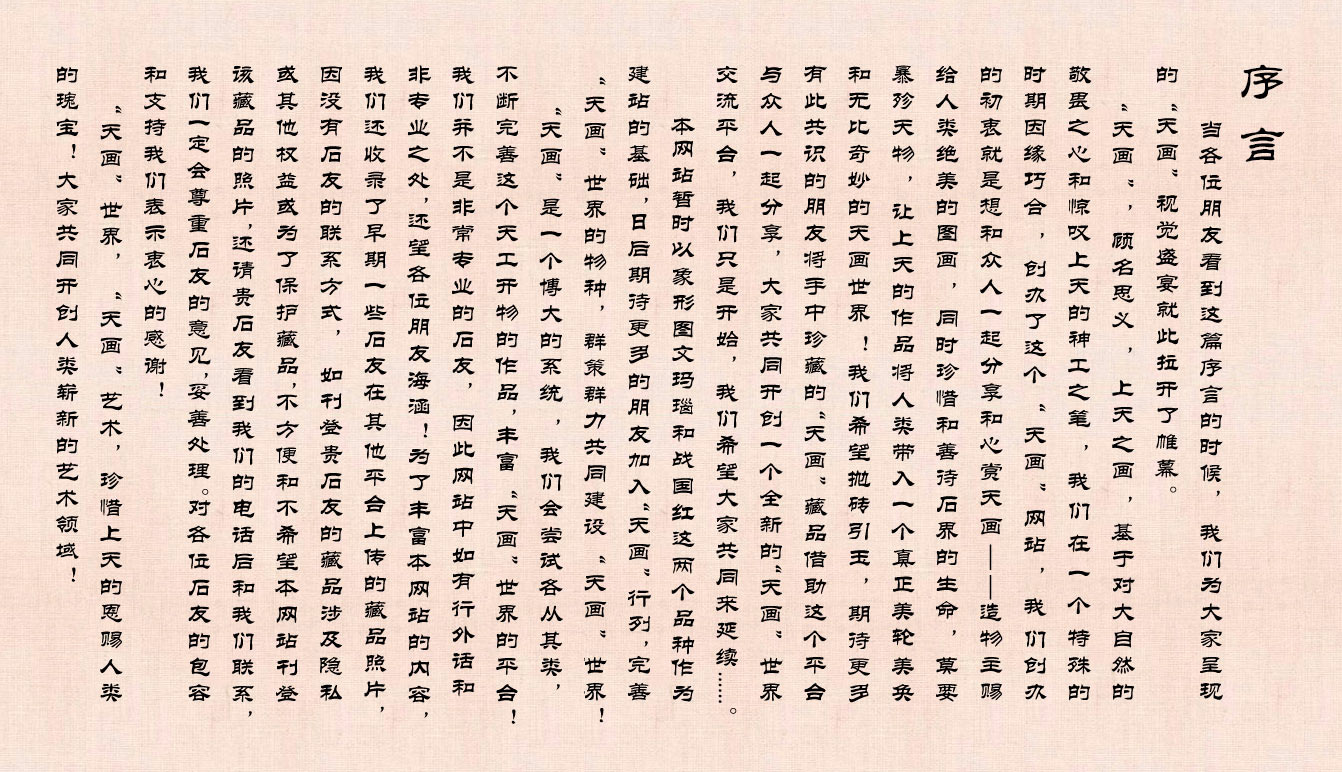 序言
当各位朋友看到这篇序言的时候，我们为大家呈现
的“天画”视觉盛宴就此拉开了帷幕。
“天画”，顾名思义，上天之画，基于对大自然的
敬畏之心和惊叹上天的神工之笔，我们在一个特殊的
时期因缘巧合，创办了这个“天画”网站，我们创办
的初衷就是想和众人一起分享和心赏天画——造物主赐
给人类绝美的图画，同时珍惜和善待石界的生命，莫要
暴殄天物，让上天的作品将人类带入一个真正美轮美奂
和无比奇妙的天画世界！我们希望抛砖引玉，期待更多
有此共识的朋友将手中珍藏的“天画”藏品借助这个平台
与众人一起分享，大家共同开创一个全新的“天画”世界
交流平台，我们只是开始，我们希望大家共同来延续……。
本网站暂时以象形图文玛瑙和战国红这两个品种作为
建站的基础，日后期待更多的朋友加入“天画”行列，完善
“天画”世界的物种，群策群力共同建设“天画”世界！
“天画”是一个博大的系统，我们会尝试各从其类，
不断完善这个天工开物的作品，丰富“天画”世界的平台！
我们并不是非常专业的石友，因此网站中如有行外话和
非专业之处，还望各位朋友海涵！为了丰富本网站的内容，
我们还收录了早期一些石友在其他平台上传的藏品照片，
因没有石友的联系方式，如刊登贵石友的藏品涉及隐私
或其他权益或为了保护藏品，不方便和不希望本网站刊登
该藏品的照片，还请贵石友看到我们的电话后和我们联系，
我们一定会尊重石友的意见，妥善处理。对各位石友的包容
和支持我们表示衷心的感谢！
“天画”世界，“天画”艺术，珍惜上天的恩赐人类
的瑰宝！大家共同开创人类崭新的艺术领域！